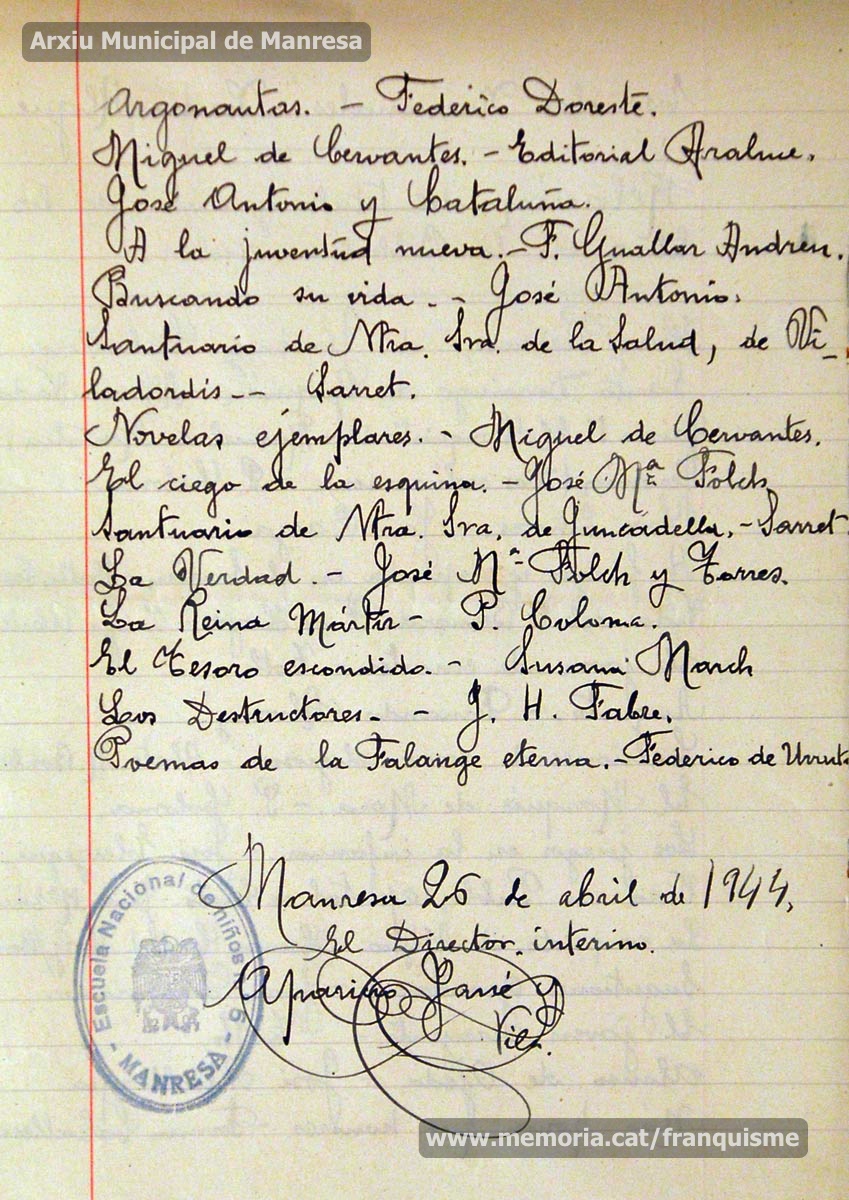 Arxiu Municipal de Manresa
Argonautas. - Federico Doreste.
Miguel de Cervantes. - Editorial Araluce.
José Antonio y Cataluña.
A la juventud nueva. - F. Guallar Andreu.
Buscando su vida. - José Antonio.
Santuario de Ntra. Sra. de la Salud, de Vi-
ladordis - - Sarret.
Novelas ejemplares. - Miguel de Cervantes.
El ciego de la esquina. - José Mª Folch
Santuario de Ntra. Sra. de Juncadella. - Sarret.
La Verdad. - José Mª Folch y Torres.
La Reina Mártir - P. Coloma.
El Tesoro escondido. - Susana March
Los Destructores. - J. H. Fabre.
Poemas de la Falange eterna. - Federico de Urrut
Manresa 26 de abril de 1944.
El Director interino.
Aparicio y
Vila
Escuela Nacional de niños nº 6
- MANRESA -
www.memoria.cat/franquisme